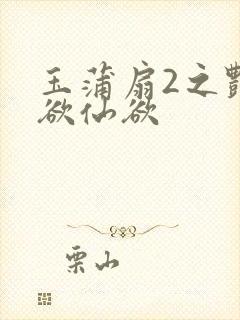 玉蒲扇2之艷
欲仙欲
栗山